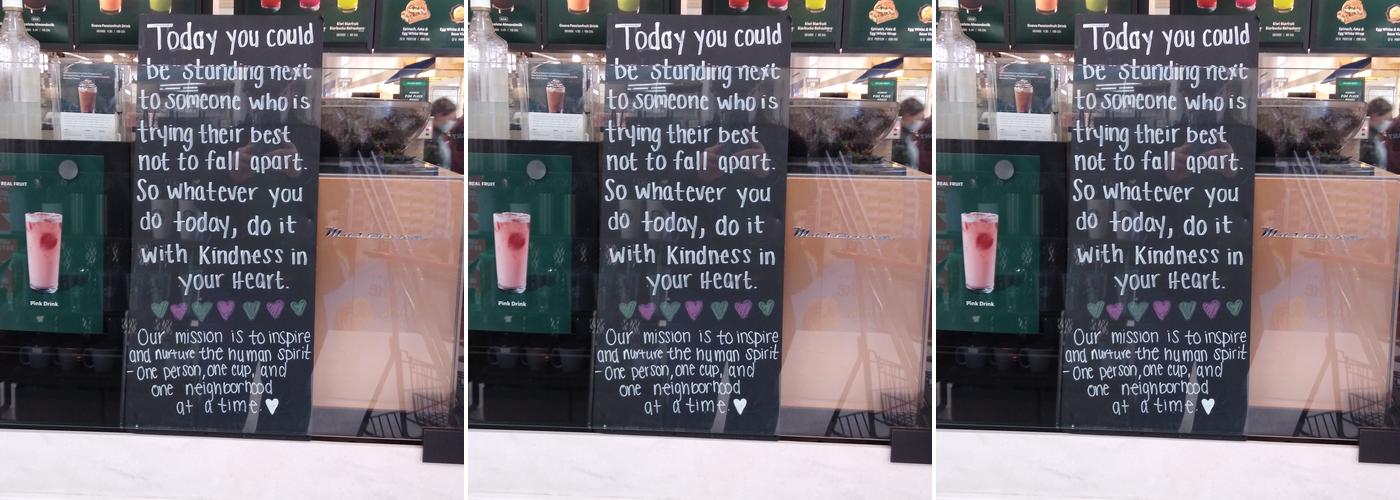 Today you could
be standing next
to someone who is
trying their best
not to fall apart.
So whatever you
do today, do it
with Kindness in
your Heart.
Our mission is to inspire
and nurture the human spirit
- One person, one cup, and
one neighborhood
at a time.
REAL FRUIT
Pink Drink
Today you could
be standing next
to someone who is
trying their best
not to fall apart.
So whatever you
do today, do it
with Kindness in
your Heart.
Our mission is to inspire
and nurture the human spirit
- One person, one cup, and
one neighborhood
at a time.
REAL FRUIT
Pink Drink
Today you could
be standing next
to someone who is
trying their best
not to fall apart.
So whatever you
do today, do it
with Kindness in
your Heart.
Our mission is to inspire
and nurture the human spirit
- One person, one cup, and
one neighborhood
at a time.
REAL FRUIT
Pink Drink